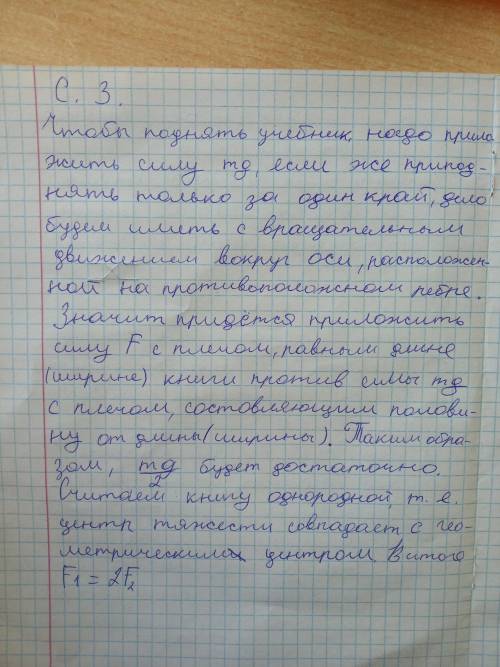 С. 3.
Чтобы поднять учебник, надо прила
жить силу mg, если же припод-
нять только за один край, дело
будем иметь с вращательным
движением вокруг оси, расположен-
ной на противоположном ребре.
Значит придётся приложить
силу F с плечом, равным длине
(ширине) книги против силы mg
с плечом, состовляющим полови-
ну от длины (ширины). Таким обра-
зом, mg/2 будет достаточно.
Считаем книгу однородной, т. е.
центр тяжести совпадает с гео-
метрическим центром. В итоге
F₁ = 2F₂